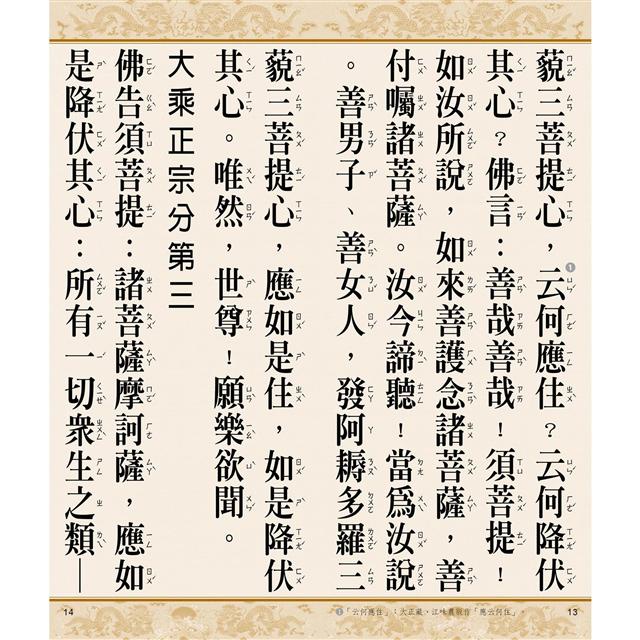 藐三菩提心，云何應住？云何降伏
其心？佛言：善哉善哉！須菩提！
如汝所說，如來善護念諸菩薩，善
付囑諸菩薩。汝今諦聽！當為汝說
。善男子、善女人，發阿耨多羅三
藐三菩提心，應如是住，如是降伏
其心。唯然，世尊！願樂欲聞。
大乘正宗分第三
佛告須菩提：諸菩薩摩訶薩，應如
是降伏其心：所有一切眾生之類——
❶「云何應住」：大正藏、江味農版作「應云何住」。
13
14